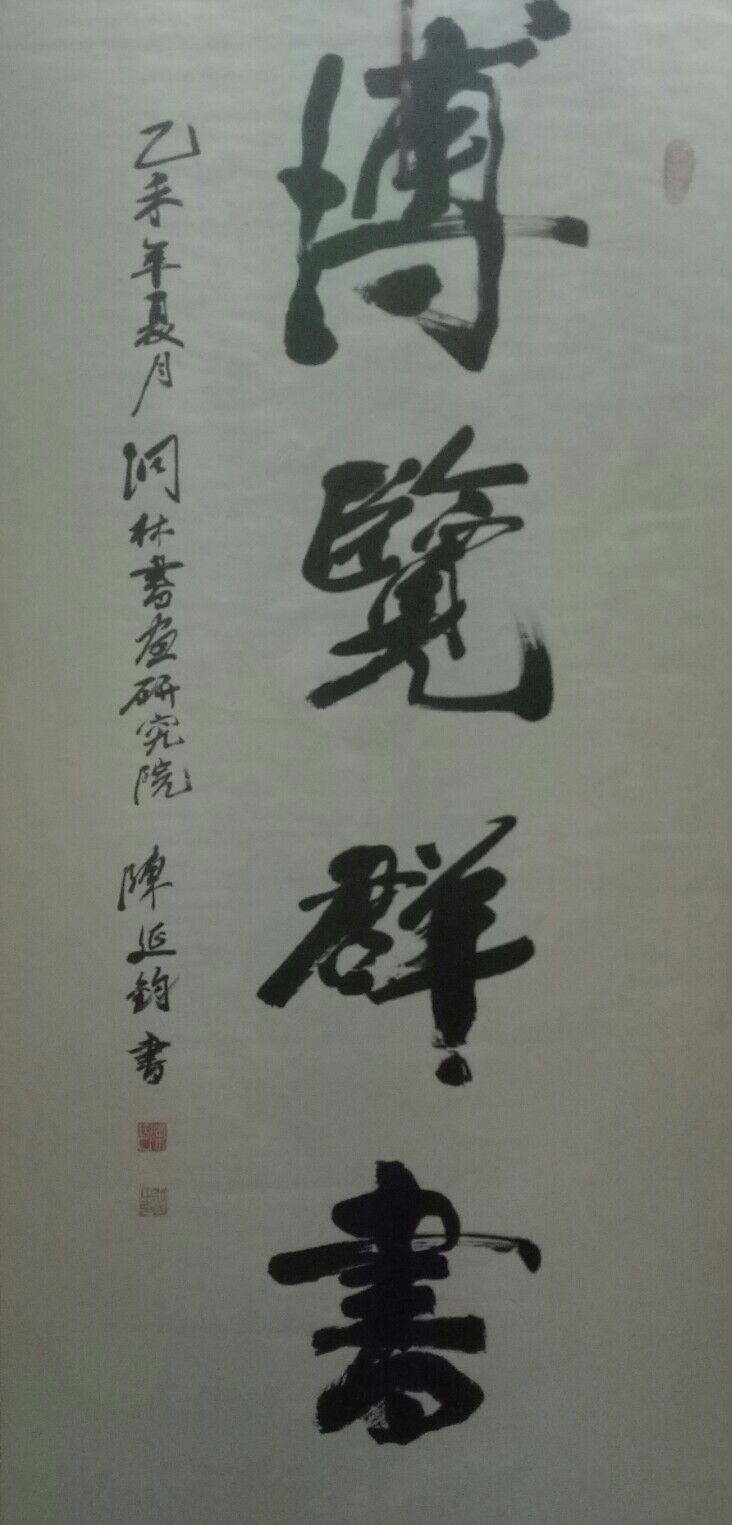 博覽群書
乙未年夏月 洞林書画研究院 陳延鈞書